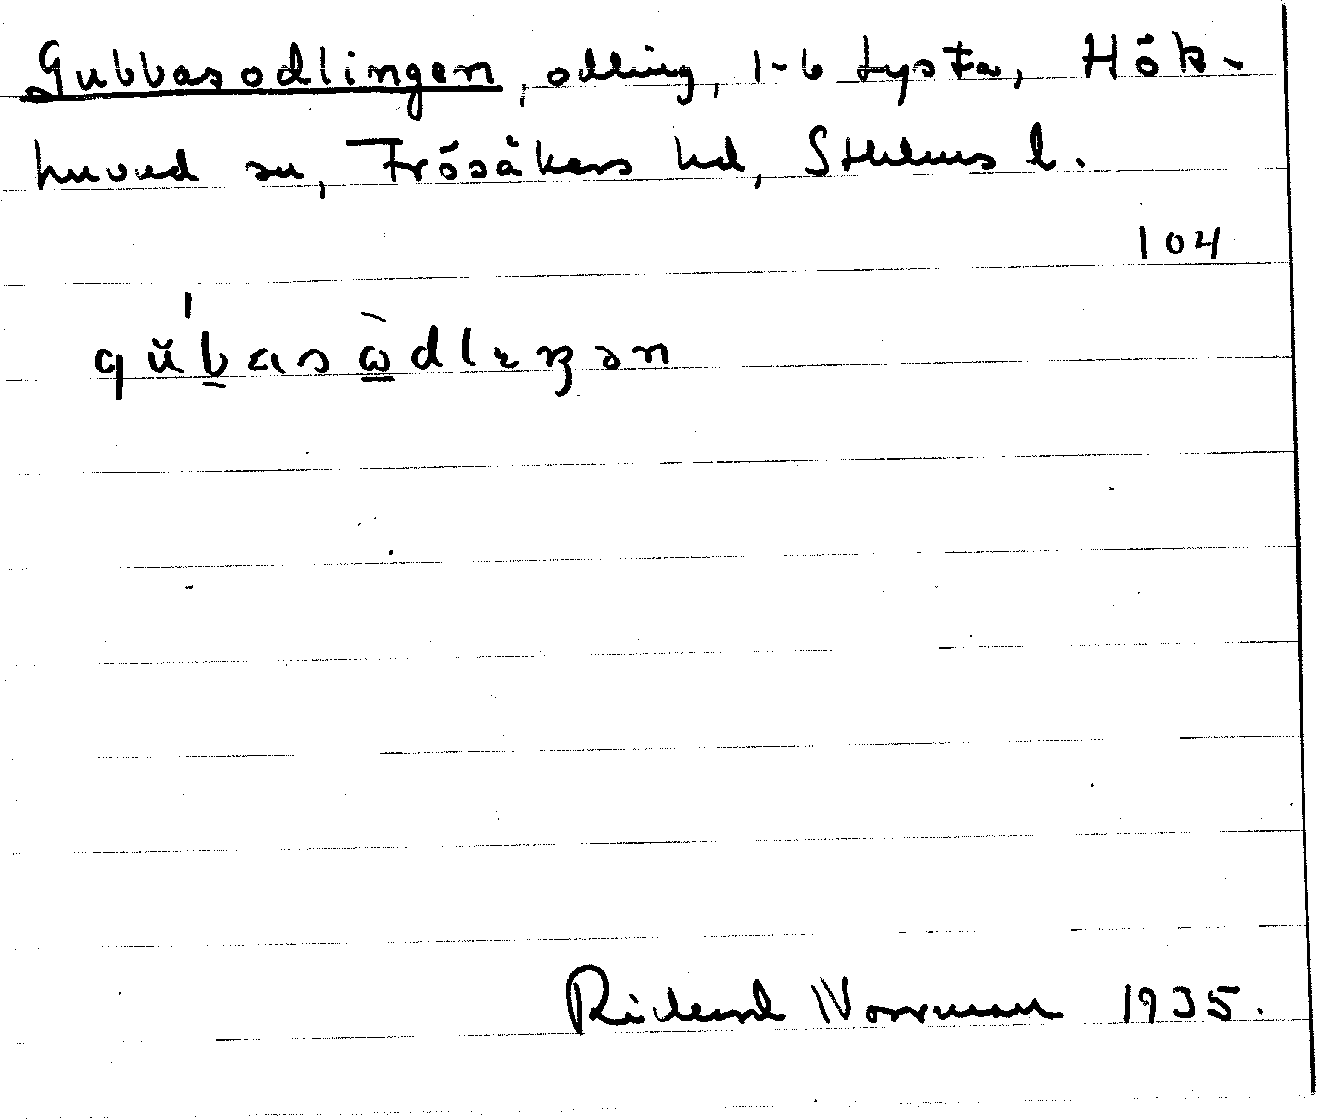 Gubbasodlingen, odling, 1-6 Lysta, Hök-
huvud sn, Frösåkers hd, Sthlms l.
104
gŭbasɷ̀dlɩŋən
Rickard Norrman 1935.